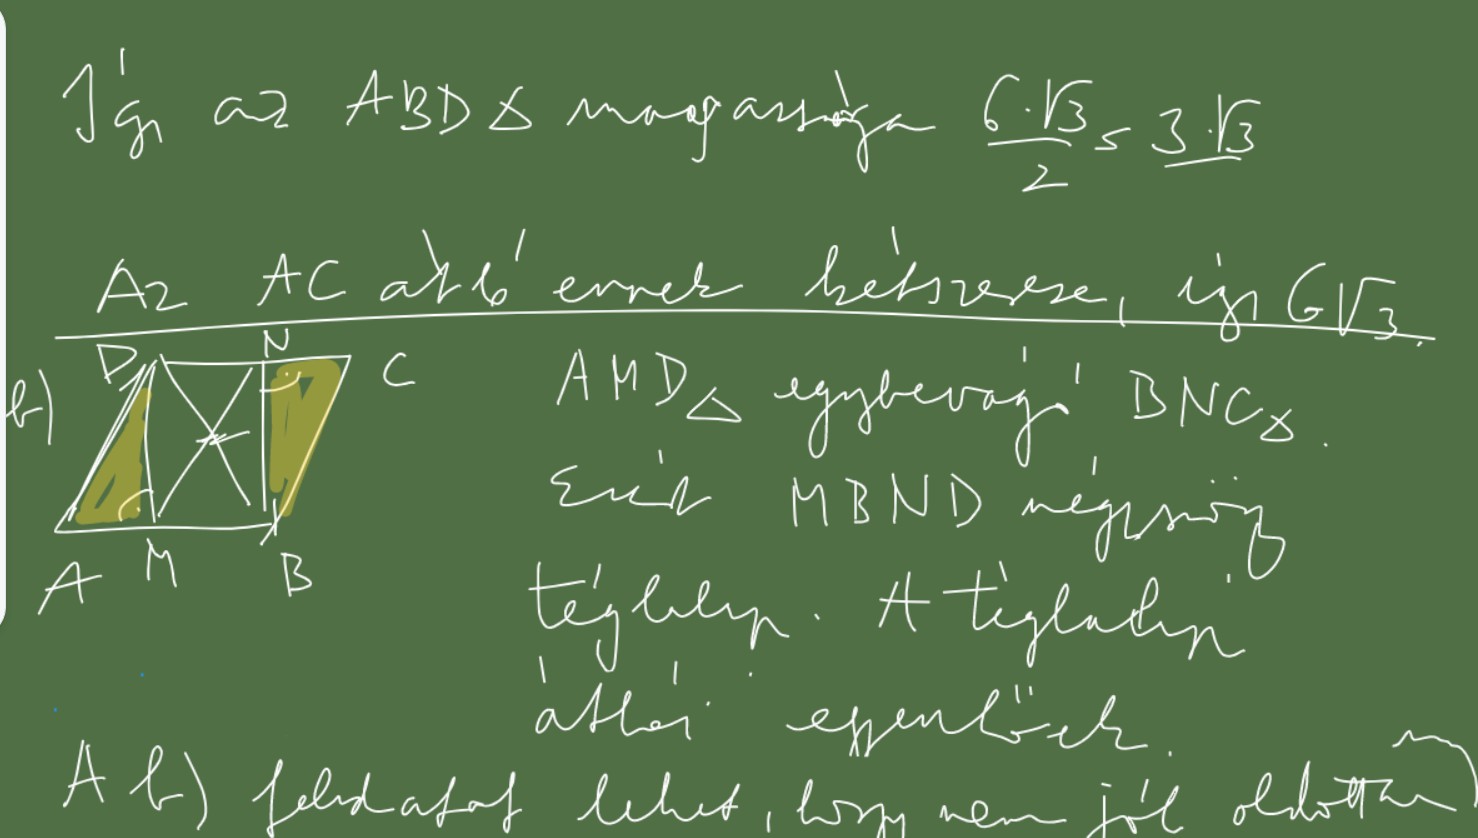 Így az ABD△ magassága 6·√3/2 = 3·√3
Az AC átló ennek kétszerese, így 6√3.
b)
D N C
A M B
AMD△ egybevágó BNC△.
Ezért MBND négyszög
téglalap. A téglalap
átlói egyenlőek.
A b) feladatot lehet, hogy nem jól oldottam